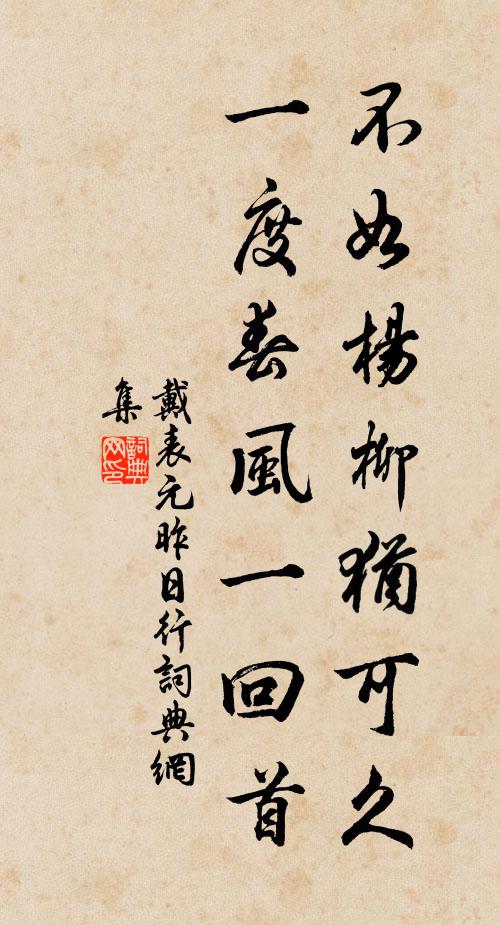 不如楊柳猶可久
一度春風一回首
戴表元昨日行詞典網
集
詞典網印